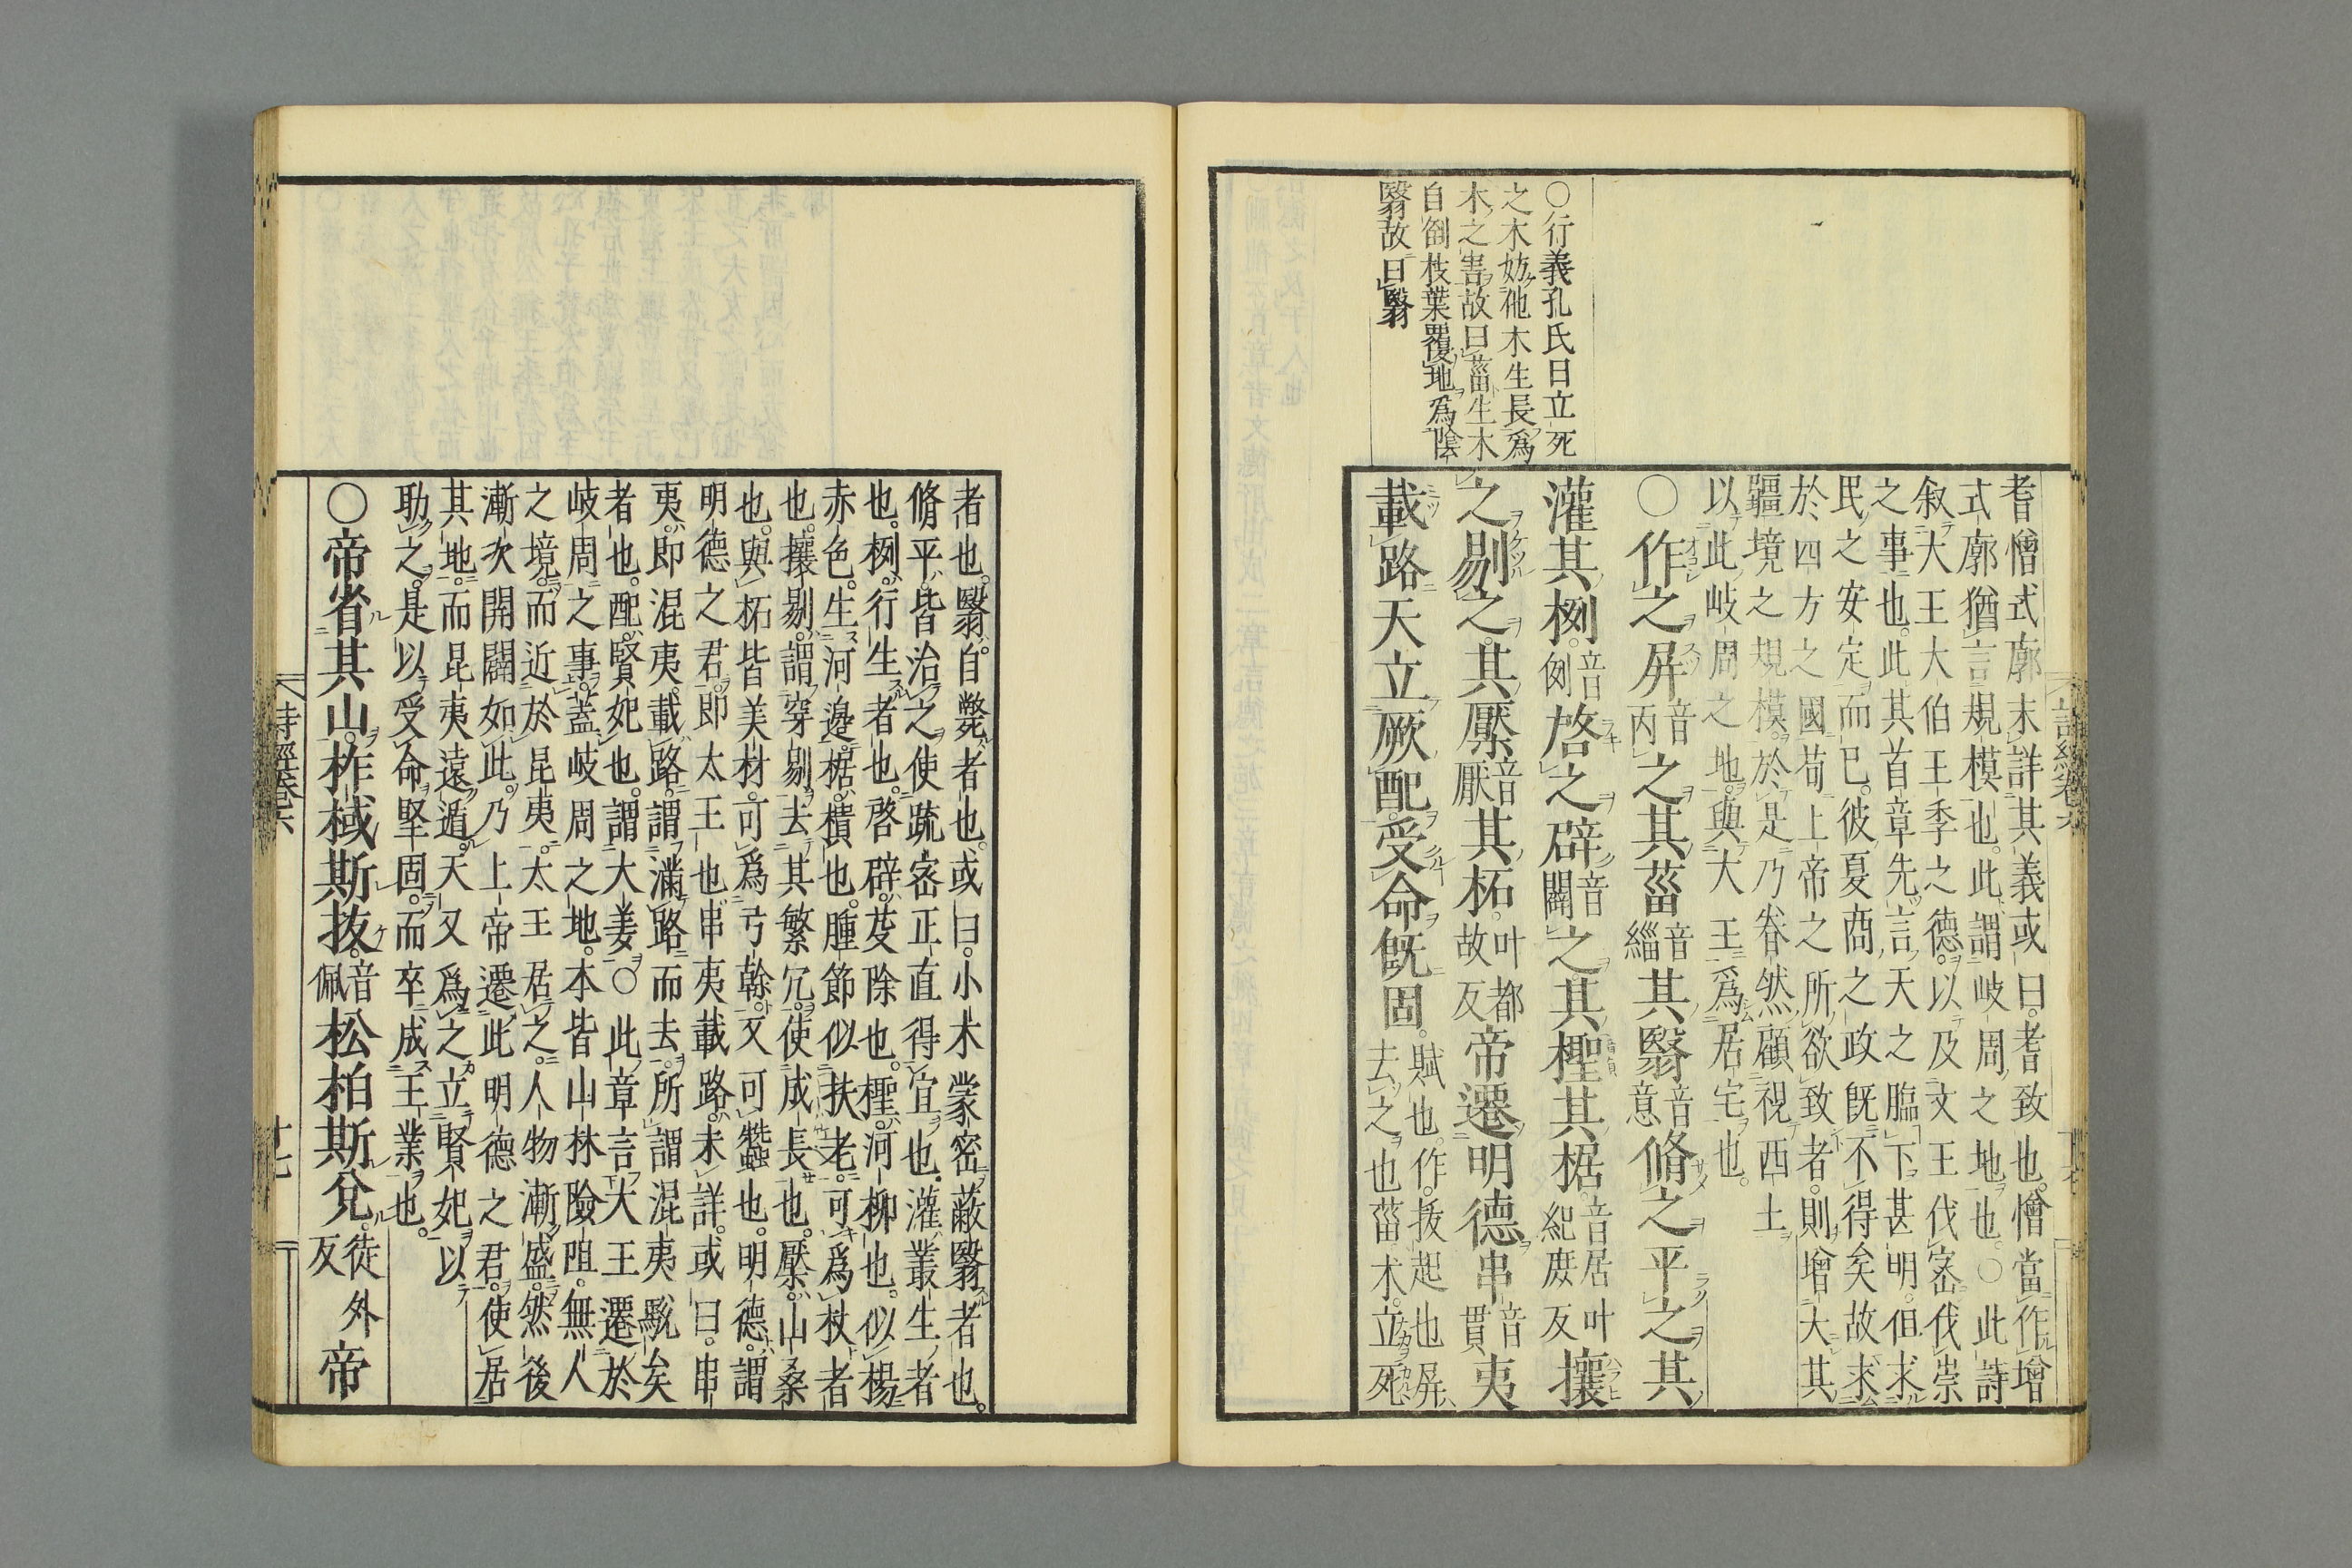 ○行義孔氏曰立死
之木妨他木生長爲
木之害故曰菑生木
自倒枝葉覆地爲陰
翳故曰翳
耆憎式廓未詳其義或曰耆致也憎當作增
式廓猶言規模也此謂岐周之地也○此詩
叙大王大伯王季之德以及文王伐密伐崇
之事也此其首章先言天之臨下甚明但求
民之安定而已彼夏商之政旣不得矣故求
於四方之國苟上帝之所欲致者則增大其
疆境之規模於是乃眷然顧視西土
以此岐周之地與大王爲居宅也
○作之屏音丙之其菑音緇其翳音意脩之平之其
灌其栵音例啓之辟音闢之其檉其椐音居叶紀庶反攘
之剔之其檿音厭其柘叶都故反帝遷明德串音貫夷
載路天立厥配受命旣固賦也作拔起也屏去之也菑木立死
者也翳自斃者也或曰小木蒙密蔽翳者也
脩平皆治之使疏密正直得宜也灌叢生者
也栵行生者也啓辟芟除也檉河柳也似楊
赤色生河邊椐樻也腫節似扶老可爲杖者
也攘剔謂穿剔去其繁冗使成長也檿山桑
也與柘皆美材可爲弓榦又可蠶也明德謂
明德之君即太王也串夷載路未詳或曰串
夷即混夷載路謂滿路而去所謂混夷駾矣
者也配賢妃也謂大姜○此章言大王遷於
岐周之事蓋岐周之地本皆山林險阻無人
之境而近於昆夷太王居之人物漸盛然後
漸次開闢如此乃上帝遷此明德之君使居
其地而昆夷遠遁天又爲之立賢妃以
助之是以受命堅固而卒成王業也
○帝省其山柞棫斯拔音佩松柏斯兌徒外反帝
詩經卷六
十七